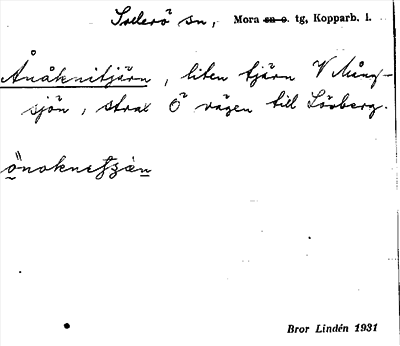 Sollerö sn, Mora sn o. tg, Kopparb. l.
Ånåknitjärn, liten tjärn V Mång-
sjön, strax Ö vägen till Lövberg.
Bror Lindén 1931